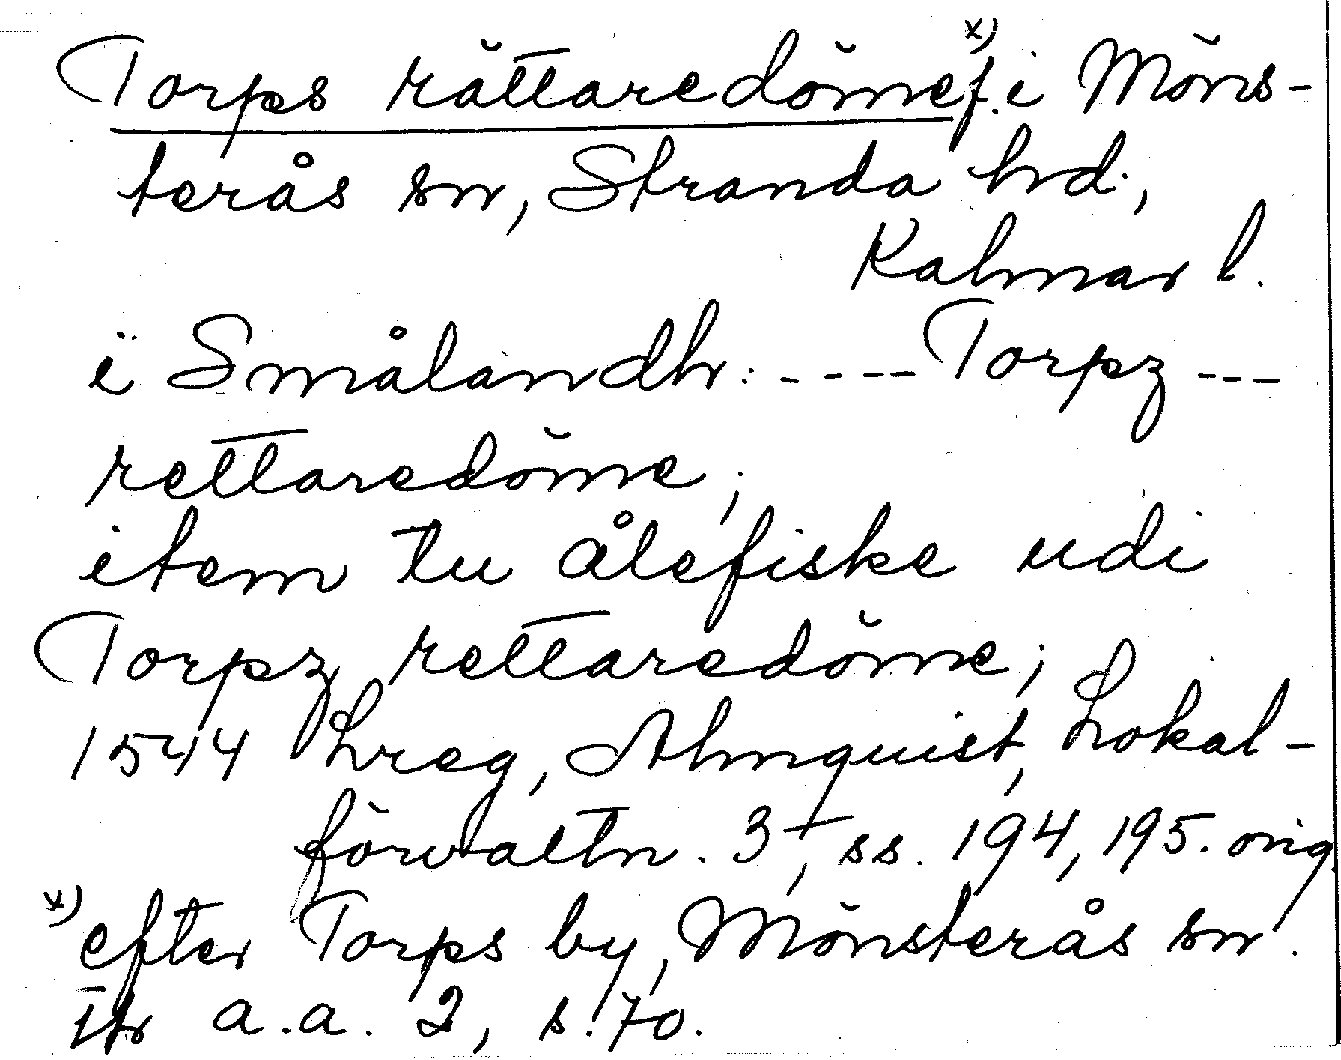 Torps rättaredöme f. x) i Möns-
terås sn, Stranda hd.,
Kalmar l.
i Smålandh: ---- Torpz ---
rettaredöme;
item tu ålefiske udi
Torpz rettaredöme;
1544 Lreg, Almquist, Lokal-
förvaltn. 3, ss. 194, 195. orig.
x) efter Torps by, Mönsterås sn.
a.a. 2, s. 70.